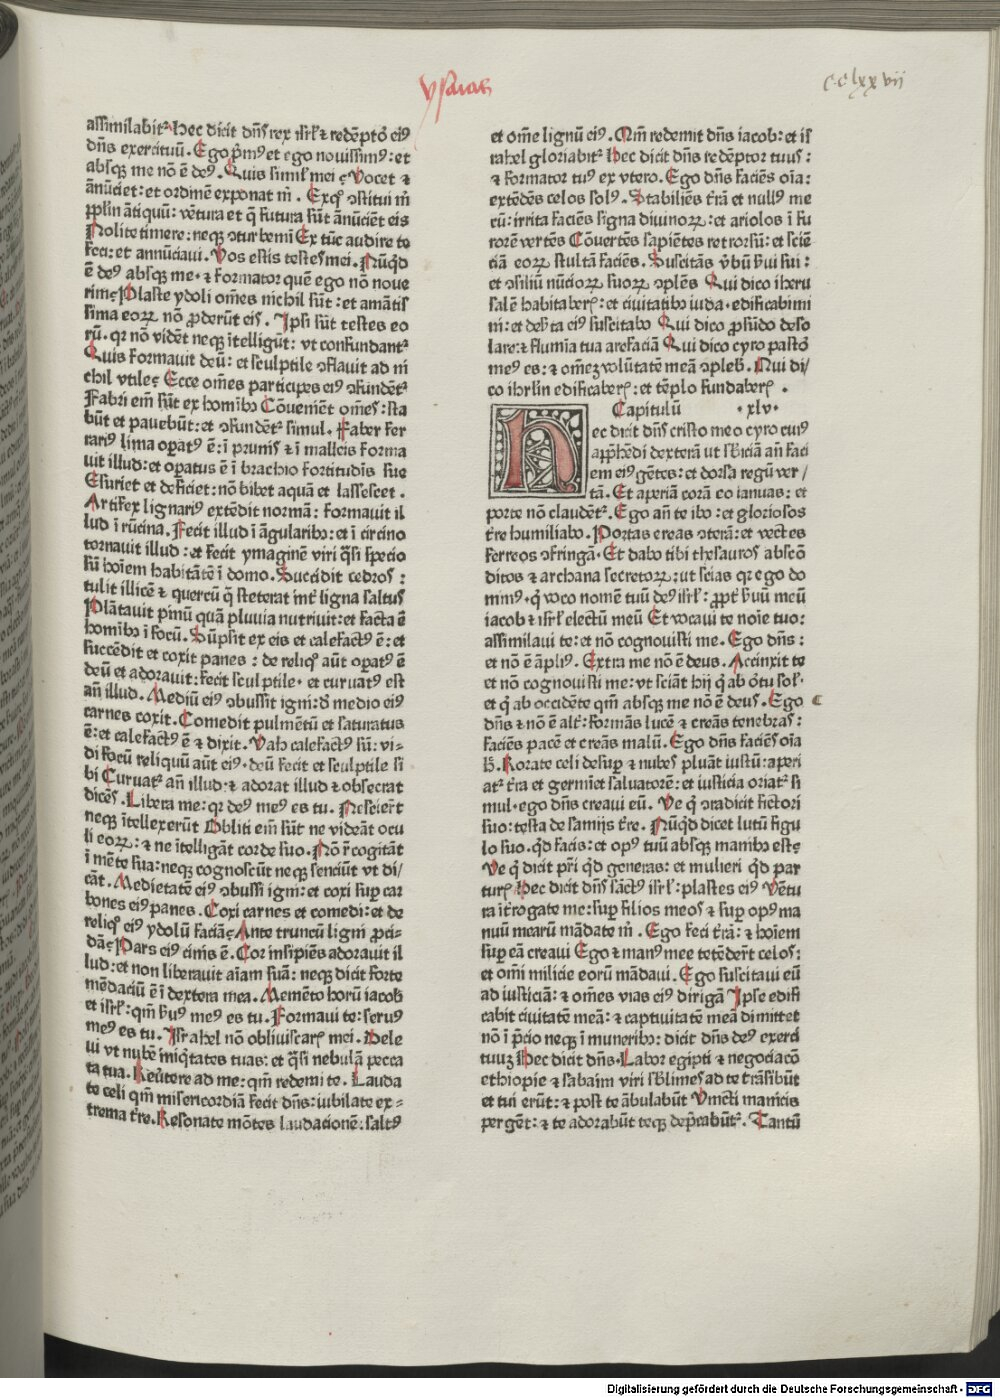 ysaias
cclxxvii
assimilabit᷑ Hec dicit dn̄s rex isrl̄ ⁊ redēptoꝛ eiꝰ
dn̄s exercituū . Ego p̄mꝰ et ego nouissimꝰ : et
absqꝫ me nō ē deꝰ . Quis simil̕ mei ē Vocet ⁊
ānūciet : et ordinē exponat m̄ . Exq̊ ꝯstitui m̄
pp̄lm ātiquū : vētura et q̄ futura sūt ānūciēt eis
Nolite timere : neqꝫ ꝯturbemī Ex tūc audire te
feci : et annūciaui . Vos estis testes mei . Nūqd̕
ē deꝰ absqꝫ me · ⁊ formator quē ego nō noue
rim Plaste ydoli om̄es nichil sūt : et amātis
sima eoꝝ nō ꝓderūt eis . Ipsi sūt testes eo
rū . qꝛ nō vidēt neqꝫ ītelligūt : vt confundant᷑
Quis formauit deū : et sculptile ꝯflauit ad ni
chil vtile Ecce om̄es participes eiꝰ ꝯfundēt᷑
Fabri em̄ sūt ex homībꝰ Cōueniēt om̄es : sta
būt et pauebūt : et ꝯfundēt᷑ simul . Faber fer
rariꝰ lima oꝑatꝰ ē : ī prunis ⁊ ī malleis forma
uit illud : et oꝑatus ē ī brachio fortitudīs sue
Esuriet et deficiet : nō bibet aquā et lassescet .
Artifex lignariꝰ extēdit normā : formauit il
lud ī rūcina . Fecit illud ī āgularibꝰ : et ī circino
tornauit illud : et fecit ymaginē viri q̄si specio
sū hoīem habitātē ī domo . Succidit cedros :
tulit illicē ⁊ quercū q̄ steterat int̕ ligna saltus
Plātauit pinū quā pluuia nutriuit : et facta ē
homībꝰ ī focū . Sūpsit ex eis et calefactꝰ ē : et
succēdit et coxit panes : de reliqꝰ aūt oꝑatꝰ ē
deū et adorauit : fecit sculptile · et curuatꝰ est
añ illud . Mediū eiꝰ ꝯbussit igni : ⁊ de medio eiꝰ
carnes coxit . Comedit pulmētū et saturatus
ē : et calefactꝰ ē ⁊ dixit . Vah calefactꝰ sū : vi⸗
di focū reliquū aūt eiꝰ · deū fecit et sculptile si
bi Curuat᷑ añ illud : ⁊ adorat illud ⁊ obsecrat
dicēs . Libera me : qꝛ deꝰ meꝰ es tu . Nescier̄t
neqꝫ ītellexerūt Obliti em̄ sūt ne videāt ocu
li eoꝝ : ⁊ ne ītelligāt corde suo . Nō r̄cogitāt
ī mēte sua : neqꝫ cognoscūt neqꝫ senciūt vt di⸗
cāt . Medietatē eiꝰ ꝯbussi igni : et coxi suꝑ car
bones eiꝰ panes . Coxi carnes et comedi : et de
reliqꝰ eiꝰ ydolū faciā Ante truncū ligni ꝓci⸗
dā Pars eiꝰ cinis ē . Cor insipiēs adorauit il
lud : et non liberauit aīam suā : neqꝫ dicit forte
mēdaciū ē ī dextera mea . Memēto horū iacob
et isrl̄ : qm̄ s̄uꝰ meꝰ es tu . Formaui te : seruꝰ
meꝰ es tu . Israhel nō obliuiscaris mei . Dele
ui vt nubē iniq̄tates tuas : et q̄si nebulā pecca
ta tua . Reūtere ad me : qm̄ redemi te . Lauda
te celi qm̄ misericordiā fecit dn̄s : iubilate ex⸗
trema tr̄e . Resonate mōtes laudationē : saltꝰ
et om̄e lignū eiꝰ . Qm̄ redemit dn̄s iacob : et is
rahel gloriabit᷑ Hec dicit dn̄s redēptor tuus :
⁊ formator tuꝰ ex vtero . Ego dn̄s faciēs oīa :
extēdēs celos solꝰ . Stabiliēs tr̄ā et nullꝰ me
cū : irrita faciēs signa diuinoꝝ : et ariolos ī fu
rorē vertēs Cōuertēs sapiētes retrorsū : et sciē
ciā eoꝝ stultā faciēs . Suscitās v̄bū s̄ui sui :
et ꝯsiliū nūcioꝝ suoꝝ ꝯplēs Qui dico iheru
salē habitaberis : et ciuitatibꝰ iuda · edificabimi
ni : et des̄ta eiꝰ suscitabo Qui dico ꝓfūdo deso
lare : ⁊ flumīa tua arefaciā Qui dico cyro pastoꝛ
meꝰ es : ⁊ om̄eꝫ volūtatē meā ꝯplebis . Qui di⸗
co ihrl̄m edificaberis : et tēplo fundaberis .
Capitulū · xlv ·
Hec dicit dn̄s cristo meo cyro cuiꝰ
apprehēdi dexterā ut s̄biciā añ faci
em eiꝰ gētes : et dorsa regū ver/
tā . Et aperiā corā eo ianuas : et
porte nō claudēt᷑ . Ego añ te ibo : et gloriosos
tr̄re humiliabo . Portas ereas ꝯterā : et vectes
ferreos ꝯfringā . Et dabo tibi thesauros abscō
ditos ⁊ archana secretoꝝ : ut scias qꝛ ego do
minꝰ · q̄ voco nomē tuū deꝰ isrl̄ : ꝓpt̕ s̄uū meū
iacob ⁊ isrl̄ electū meū Et vocaui te noīe tuo :
assimilaui te : et nō cognouisti me . Ego dn̄s :
et nō ē āpliꝰ . Extra me nō ē deus . Accinxit te
et nō cognouisti me : vt sciāt hij q̄ ab oꝛtu solis
et q̄ ab occidēte qm̄ absqꝫ me nō ē deus . Ego
dn̄s ⁊ nō ē alt̕ : formās lucē ⁊ creās tenebras :
faciēs pacē et creās malū . Ego dn̄s faciēs oīa
h̄ . Rorate celi desuꝑ ⁊ nubes pluāt iustū : aperi
at᷑ tr̄a et germīet saluatorē : et iusticia oriat᷑ si
mul · ego dn̄s creaui eū . Ve q̄ ꝯtradicit fictori
suo : testa de samijs tr̄e . Nūqd̕ dicet lutū figu
lo suo . qd̕ facis : et opꝰ tuū absqꝫ manibꝰ est
Ve q̄ dicit pr̄i qd̕ generas : et mulieri qd̕ par
turis Hec dicit dn̄s sāctꝰ isrl̄ : plastes eiꝰ Vētu
ra īt̕rogate me : suꝑ filios meos ⁊ suꝑ opꝰ ma
nuū mearū mādate m̄ . Ego feci tr̄ā : ⁊ hoīem
suꝑ eā creaui Ego ⁊ manꝰ mee tetēder̄t celos :
et om̄i milicie eorū mādaui . Ego suscitaui eū
ad iusticiā : ⁊ om̄es vias eiꝰ dirigā Ipse edifi
cabit ciuitatē meā : ⁊ captiuitatē meā dimittet
nō ī p̄cio neqꝫ ī muneribꝰ : dicit dn̄s deꝰ exerci
tuuꝫ Hec dicit dn̄s . Labor egipti ⁊ negociacō
ethiopie ⁊ sabaim viri s̄blimes ad te trāsibūt
et tui erūt : ⁊ post te ābulabūt Vincti manicis
pergēt : ⁊ te adorabūt teqꝫ dep̄cabūt᷑ . Tantū
Digitalisierung gefördert durch die Deutsche Forschungsgemeinschaft - DFG